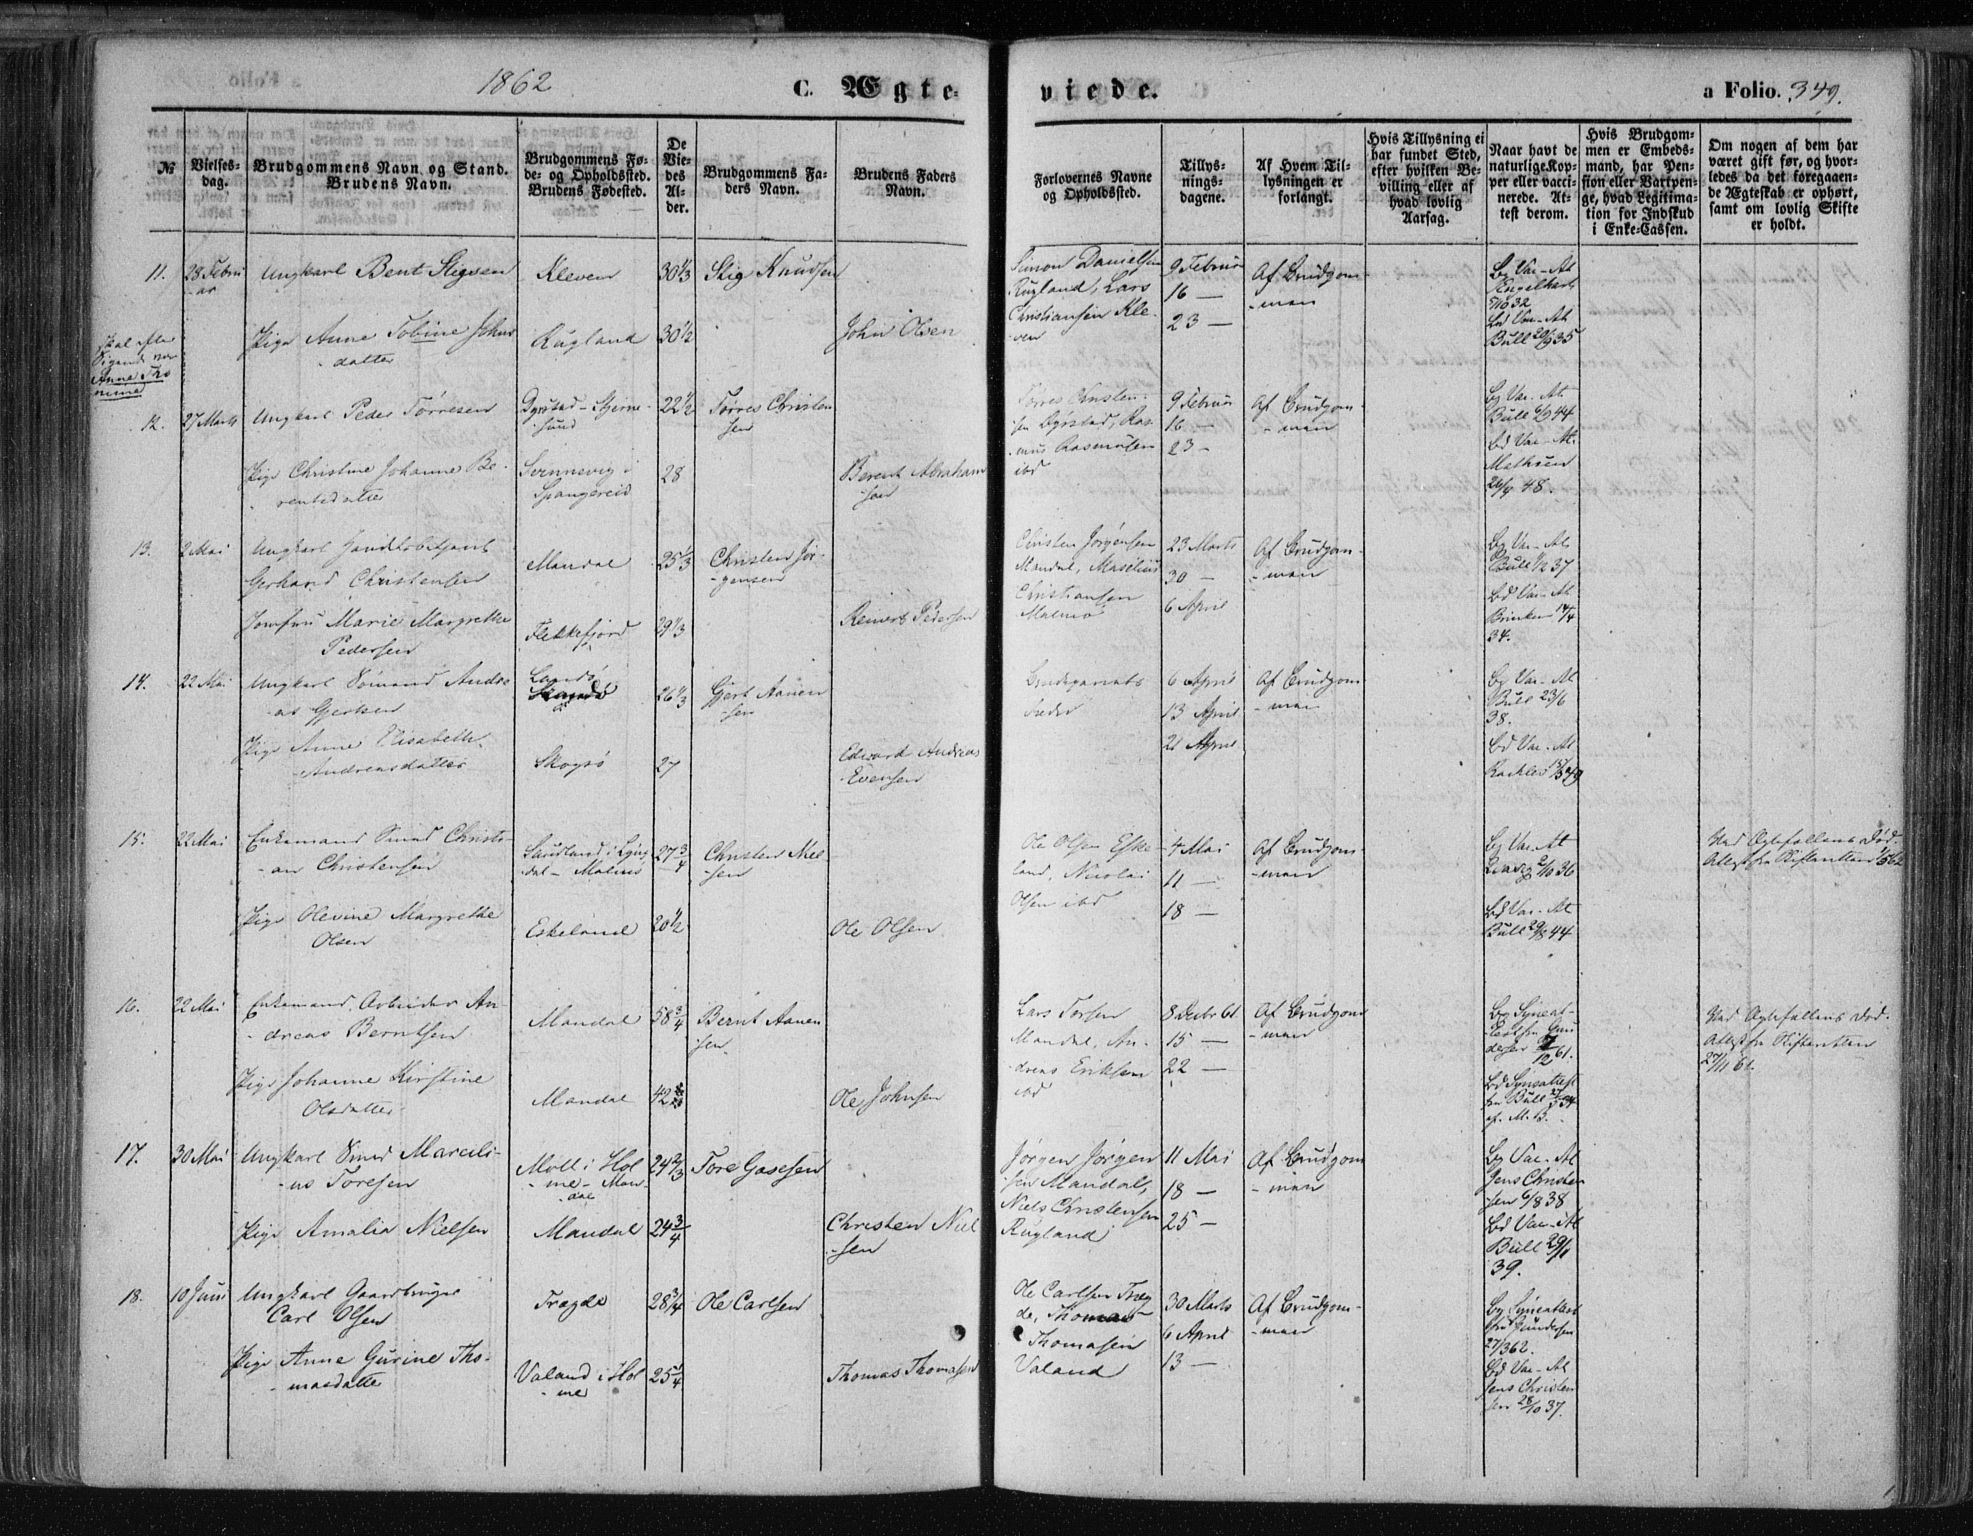 1862
C. Ægte-
viede.
a Folio. 349.
№
Vielses-
dag.
Brudgommens Navn og Stand.
Brudens Navn.
Brudgommens Fø-
de- og Opholdssted.
Brudens Fødested.
De
Vie-
des
Al-
der.
Brudgommens Fa-
ders Navn.
Brudens Faders
Navn.
Forlovernes Navne
og Opholdssted.
Tillys-
nings-
dagene.
Af Hvem Til-
lysningen er
forlangt.
Hvis Tillysning ei
har fundet Sted,
efter hvilken Be-
villing eller af
hvad lovlig
Aarsag.
Naar havt de
naturlige Kop-
per eller vacci-
nerede. At-
test derom.
Hvis Brudgom-
men er Embeds-
mand, har Pen-
sion eller Vartpen-
ge, hvad Legitima-
tion for Indskud
i Enke-Cassen.
Om nogen af dem har
været gift før, og hvor-
ledes da det foregaaen-
de Ægteskab er ophørt,
samt om lovlig Skifte
er holdt.
11. 28 Febru
-ar
Ungkarl Bent Stigsen
Kleven
30 1/3
Stig Knudsen
Simon Danielsen
Rugland, Lars
Christiansen Kle-
ven
9 Februar
16 —
23 —
Af Brudgom-
-man
Bg Vac-At
Engelhart
5/10 32
Bd Vac-At
Bull 20/9 35
Skal efter
Sigende være
Anne Tro
nine
Pige Anne Tobine Johns
-datter
Rugland
30 1/2
John Olsen
12. 27 Marts
Ungkarl Peder Tørresen
Dyrstad - Stjerne-
sund
22 1/2
Tørres Christen
sen
Tørres Christen-
sen Dyrstad, Ras-
mus Rasmusen
ibd
9 Februar
16 —
23 —
Af Brudgom-
-man
Bg Vac-At
Bull 6/9 44
Bd Vac-At
Mathsen
24/9 48.
Pige Christine Johanne Be-
rentsdatter
Svennevig i
Spangereid
28
Berent Abraham
-sen
13. 2 Mai
Ungkarl Handelsbetjent
Gerhard Christensen
Mandal
25 1/3
Christen Jør-
-gensen
Christen Jørgensen
Mandal, Masilius
Christiansen
Malmø
23 Marts
30 —
6 April
Af Brudgom-
-man
Bg Vac-At
Bull 1/12 37
Bd Vac-At
Brinken 14/4
34.
Jomfru Marie Margrethe
Pedersen
Flekkefjord
29 1/3
Reinert Pedersen
14. 22 Mai
Ungkarl Sømand Andre
-as Gjertsen
Landø
26 1/3
Gjert Aanen
-sen
6 April
13 April
21 April
Af Brudgom-
-man
Bg Vac-At
Bull 23/6
38.
Bd Vac-At
Pige Anne Elisabeth
Andreasdatter
Skogsø
27
Edvard Andreas
Evensen
15. 22 Mai
Enkemand Smed Christi-
-an Christensen
Sandland i Lyng-
dal - Malmø
27 3/4
Christen Niel-
-sen
Ole Olsen Eske-
land, Nicolai
Olsen ibd
4 Mai
11 —
18 —
Af Brudgom-
-man
Bg Vac-At
2/10 36
Bd Vac-At
Bull 29/8 44
Ved Ægtefællens Død.
Attest fra Skifteretten
Pige Olevine Margrethe
Olsen
Eskeland
20 1/2
Ole Olsen
16. 22 Mai
Enkemand Arbeider An-
-dreas Berntsen
Mandal
58 3/4
Bernt Aanen
sen.
Lars Torsen
Mandal, An-
dreas Eriksen
ibd
8 Decbr 61
15 —
22 —
Af Brudgom
-man
Bg Syneat-
test fra Gun
dersen
12 61.
Bd Synsattest
fra Bull
af M. B.
Ved Ægtefællens Død.
Attest fra Skifteretten
27/11 61.
Pige Johanne Kirstine
Olsdatter
Mandal
42
Ole Johnsen
17. 30 Mai
Ungkarl Smed Marceli-
-us Toresen
Moll i Hol
-me - Man-
dal
24 2/3
Tore Gasesen
Jørgen Jørgen
-sen Mandal,
Niels Christensen
Rugland
11 Mai
18 —
25 —
Af Brudgom
-man
Bg Vac-At
Jens Christen
sen 6/8 38
Bd Vac-At
Bull 29/11
39.
Pige Amalia Nielsen
Mandal
24 3/4
Christen Niel
-sen
18. 10 Juni
Ungkarl Gaardbruger
Carl Olsen
Trægde
28 3/4
Ole Carlsen
Ole Carlsen Træg
de, Thomas
Thomasen
Valand
30 Marts
6 April
13 —
Af Brudgom-
-man
Bg Syneattest
fra Gundersen
27/3 62.
Bd Vac-At
Jens Christen
sen 28/10 37.
Pige Anne Gurine Tho-
-masdatter
Valand i Hol
-me
25 1/4
Thomas Thomasen